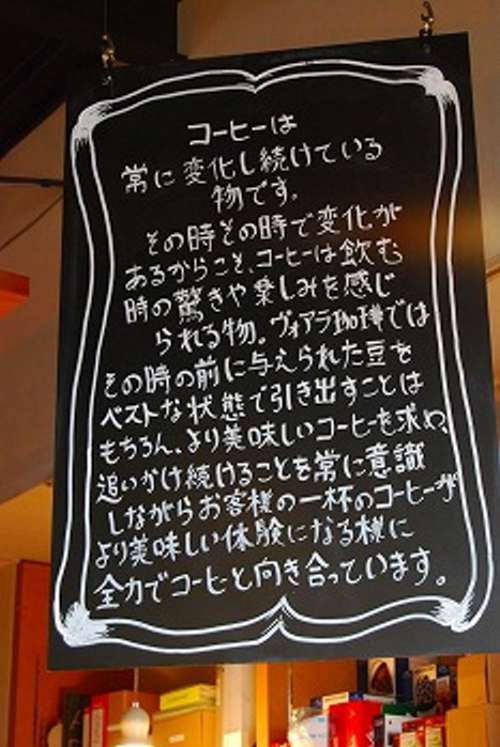 コーヒーは
常に変化し続けている
物です。
その時その時で変化が
あるからこそ、コーヒーは飲む
時の驚きや楽しみを感じ
られる物。ヴォアラ珈琲では
その時の前に与えられた豆を
ベストな状態で引き出すことは
もちろん、より美味しいコーヒーを求め、
追いかけ続けることを常に意識
しながらお客様の一杯のコーヒーが
より美味しい体験になる様に
全力でコーヒーと向き合っています。